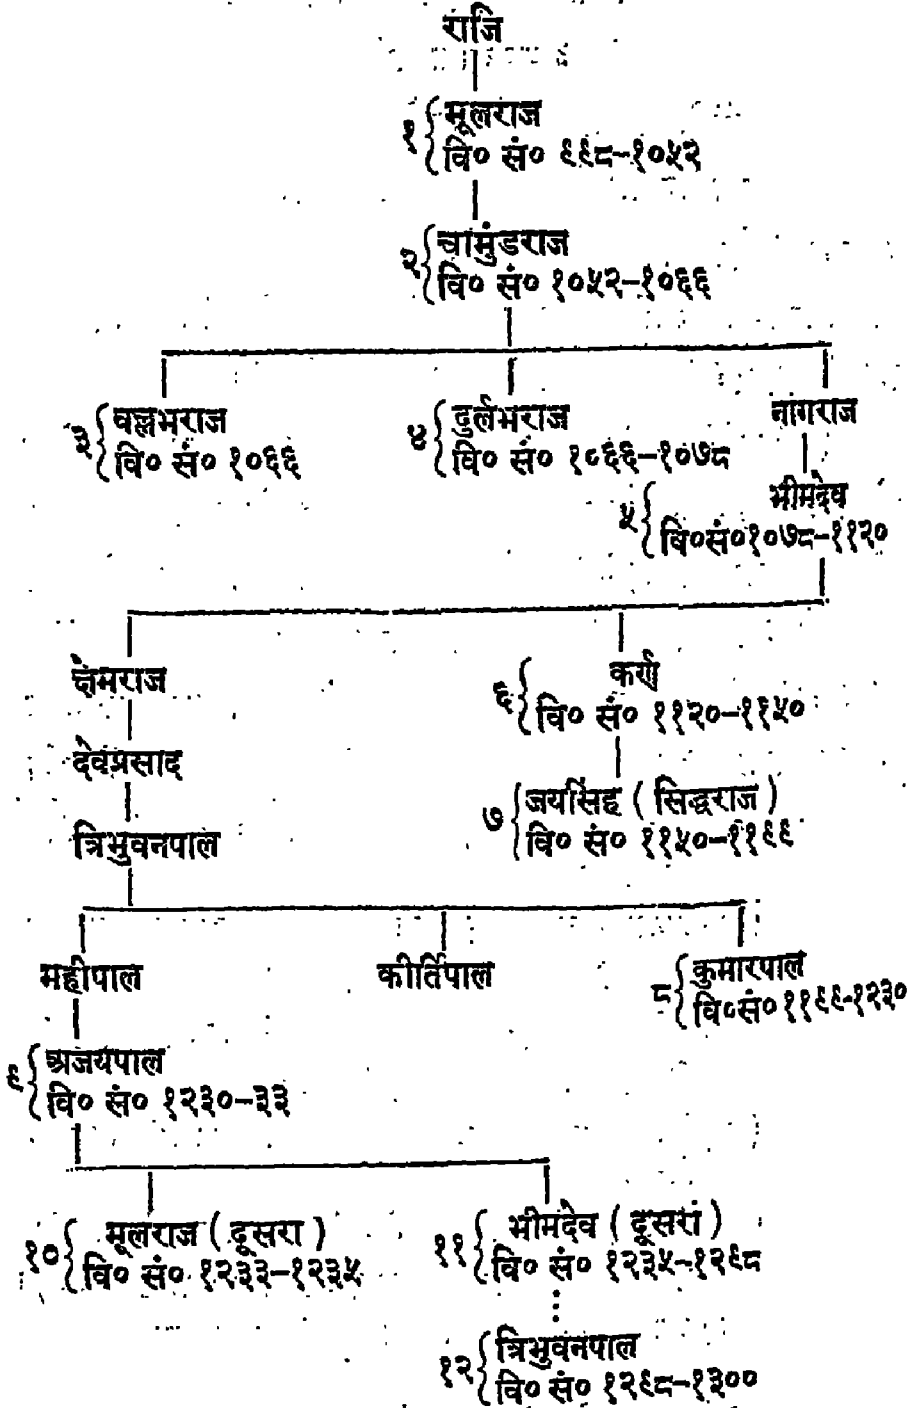 राजि
१ { मूलराज
वि० सं० ९९८-१०५२
२ { चामुंडराज
वि० सं० १०५२-१०६६
३ { वल्लभराज
वि० सं० १०६६
४ { दुर्लभराज
वि० सं० १०६६-१०७८
नागराज
५ { भीमदेव
वि०सं०१०७८-११२०
क्षेमराज
६ { कर्ण
वि० सं० ११२०-११५०
देवप्रसाद
७ { जयसिंह ( सिद्धराज )
वि० सं० ११५०-११९९
त्रिभुवनपाल
महीपाल
कीर्तिपाल
८ { कुमारपाल
वि०सं०११९९-१२३०
९ { अजयपाल
वि० सं० १२३०-३३
१० { मूलराज ( दूसरा )
वि० सं० १२३३-१२३५
११ { भीमदेव ( दूसरा )
वि० सं० १२३५-१२९८
१२ { त्रिभुवनपाल
वि० सं० १२९८-१३००